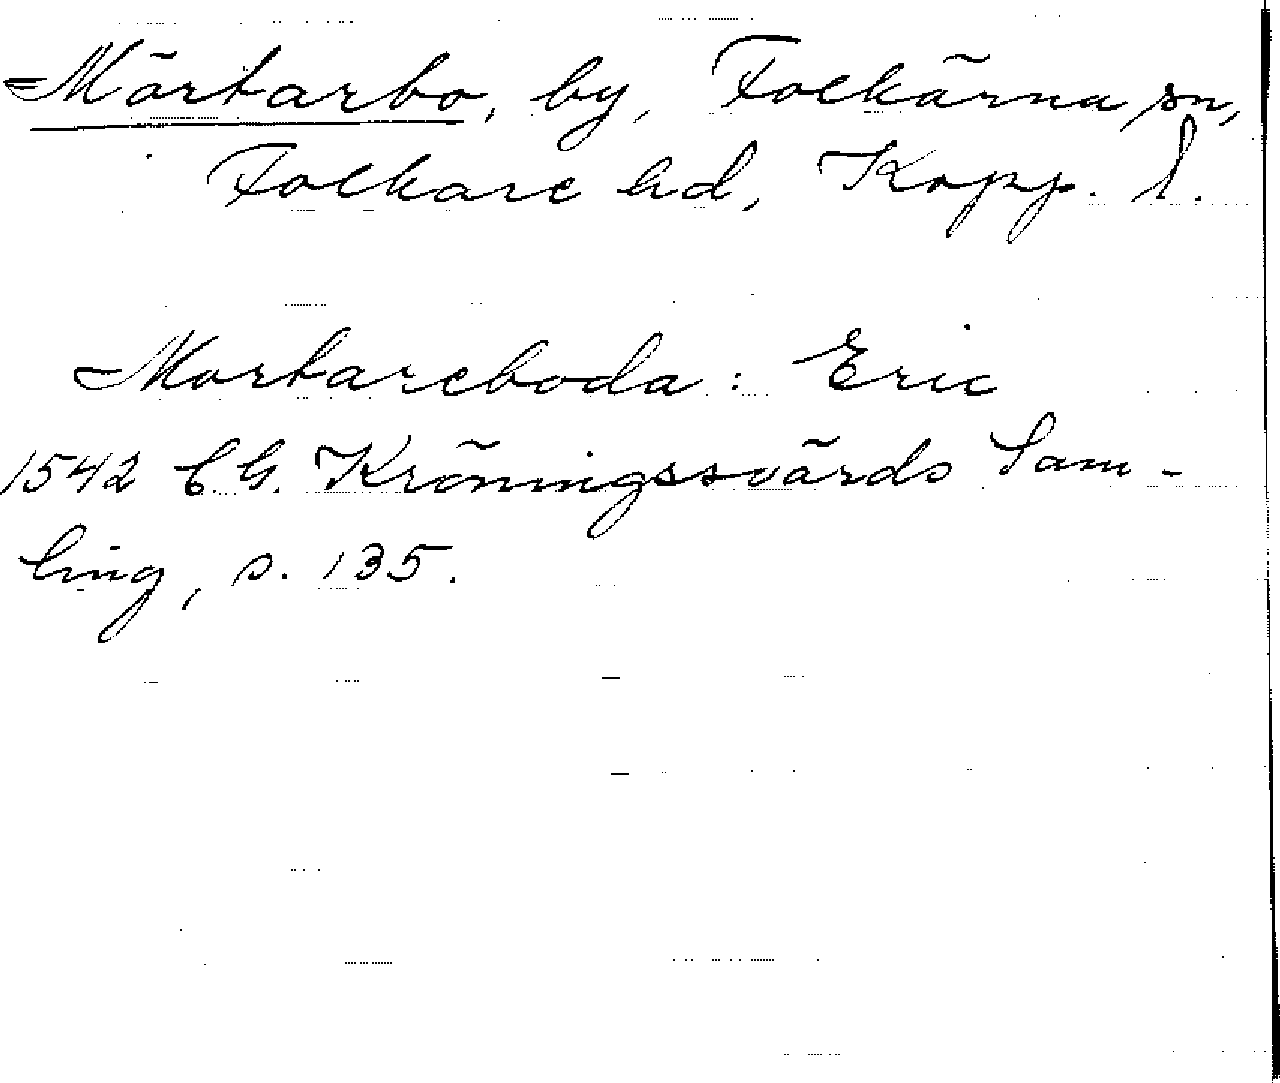 Mörtarbo, by, Folkärna sn,
Folkare hd, Kopp. l.
Mortareboda: Eric
1542 C.G. Kröningssvärds Sam-
ling, s. 135.